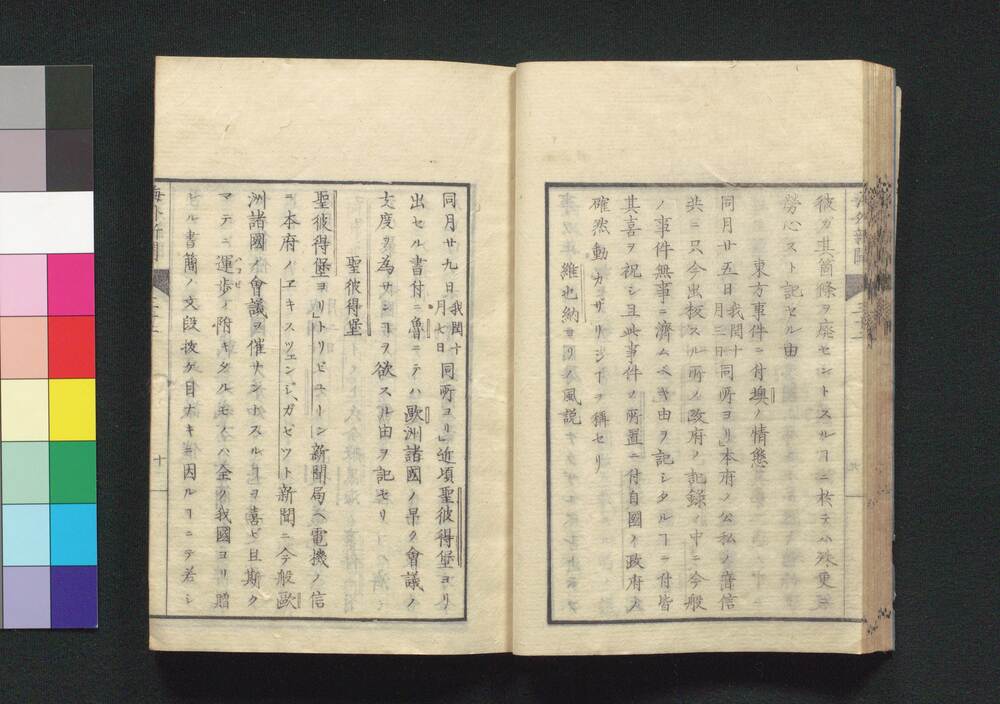 彼ガ其箇條ヲ廃セントスルヿニ於テハ殊更
勞心スト記セル由
東方事件ニ付墺ノ情態
同月廿五日我閏十月三日同所ヨリ」本府ノ公私ノ音信
共ニ只今出板スル所ノ政府ノ記録ノ中ニ今般
ノ事件無事ニ濟ムベキ由ヲ記シタルヿニ付皆
其喜ヲ祝シ且此事件ノ所置ニ付自國ノ政府
確然動カザリシヿヲ稱セリ
維也納ヨリノ風説
同月廿九日我閏十月七日同所ヨリ」近頃聖彼得堡ヨリ
出セル書付ニ魯ニテハ歐洲諸國ノ早ク會議ノ
支度ヲ為サンヿヲ欲スル由ヲ記セリ
聖彼得堡
聖彼得堡ヨリ」トリビユーン新聞局ヘ電機ノ信
ニ本府ノエキスツエンジ、ガゼツト新聞ニ今般歐
洲諸國ノ會議ヲ催サントスルヿヲ喜ビ且斯ク
マテニ運歩ノ附キタルモノハ全ク我國ヨリ贈
レル書簡ノ文段披ケ目ナキニ因ルヿニテ若シ
海外新聞
十